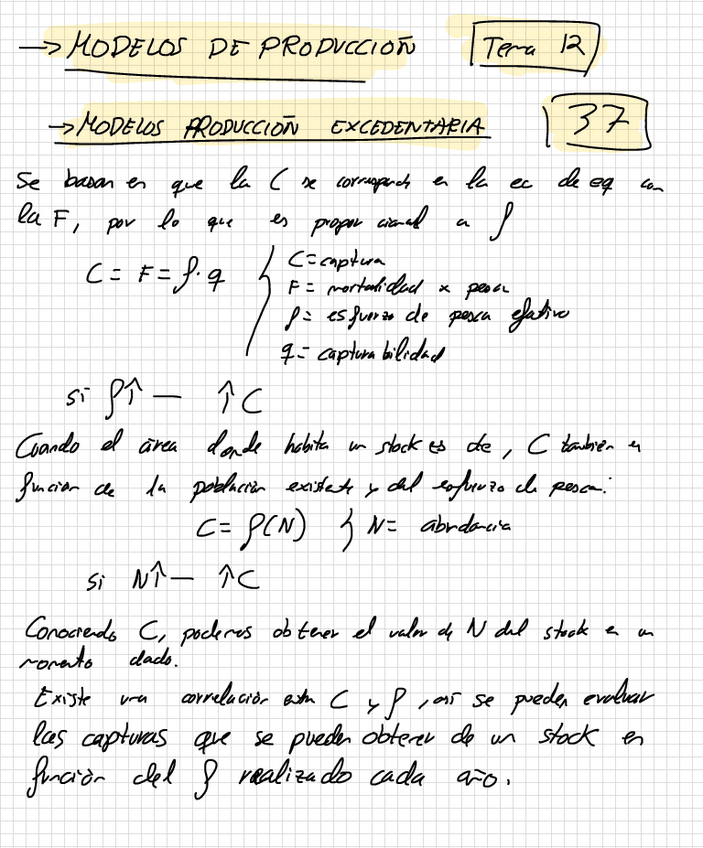 → MODELOS DE PRODUCCIÓN
Tema 12
→ MODELOS PRODUCCIÓN EXCEDENTARIA
37
Se basan en que la C se corresponde en la ec de eq con
la F, por lo que es proporcional a f
C = F = f · q
C = captura
F = mortalidad x pesca
f = esfuerzo de pesca efectivo
q = capturabilidad
si f↑ — ↑C
Cuando el área donde habita un stock es cte, C también es
función de la población existente y del esfuerzo de pesca:
C = f(N) } N = abundancia
si N↑ — ↑C
Conociendo C, podemos obtener el valor de N del stock en un
momento dado.
Existe una correlación entre C y f, así se pueden evaluar
las capturas que se pueden obtener de un stock en
función del f realizado cada año.